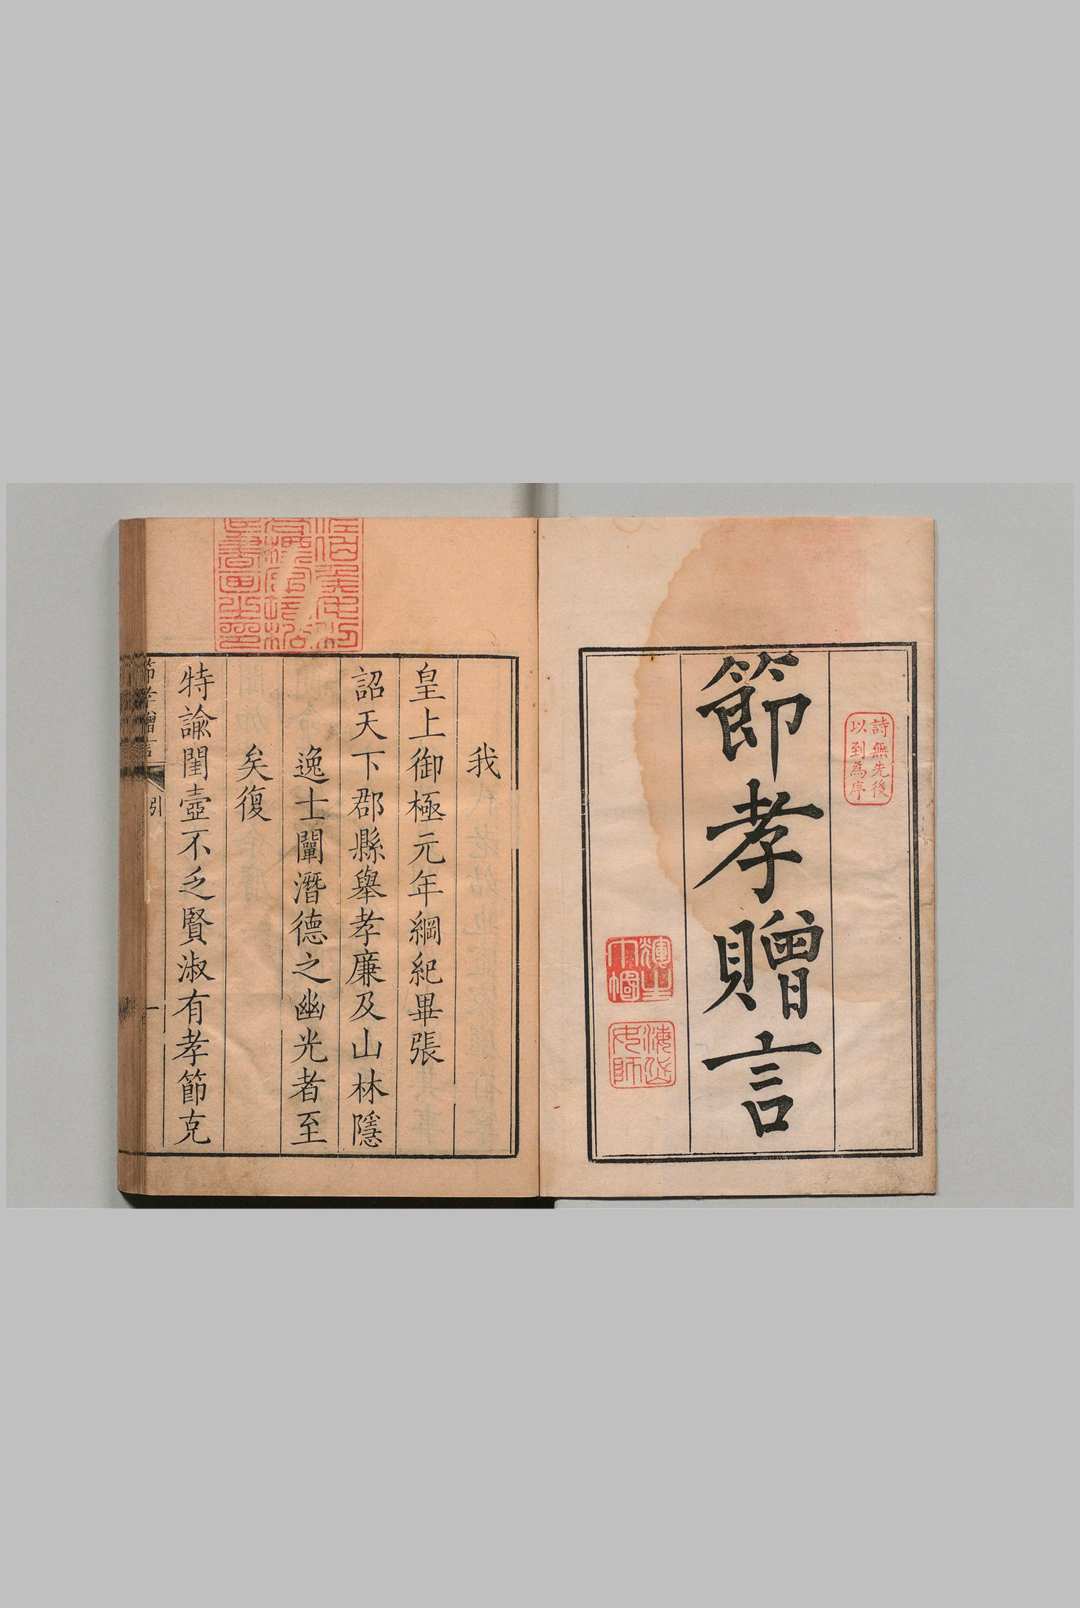 詩無先後
以到為序
節孝贈言
我
皇上御極元年綱紀畢張
詔天下郡縣舉孝廉及山林隱
逸士闡潛德之幽光者至
矣復
特諭閨壼不乏賢淑有孝節克
節孝贈言
引
一